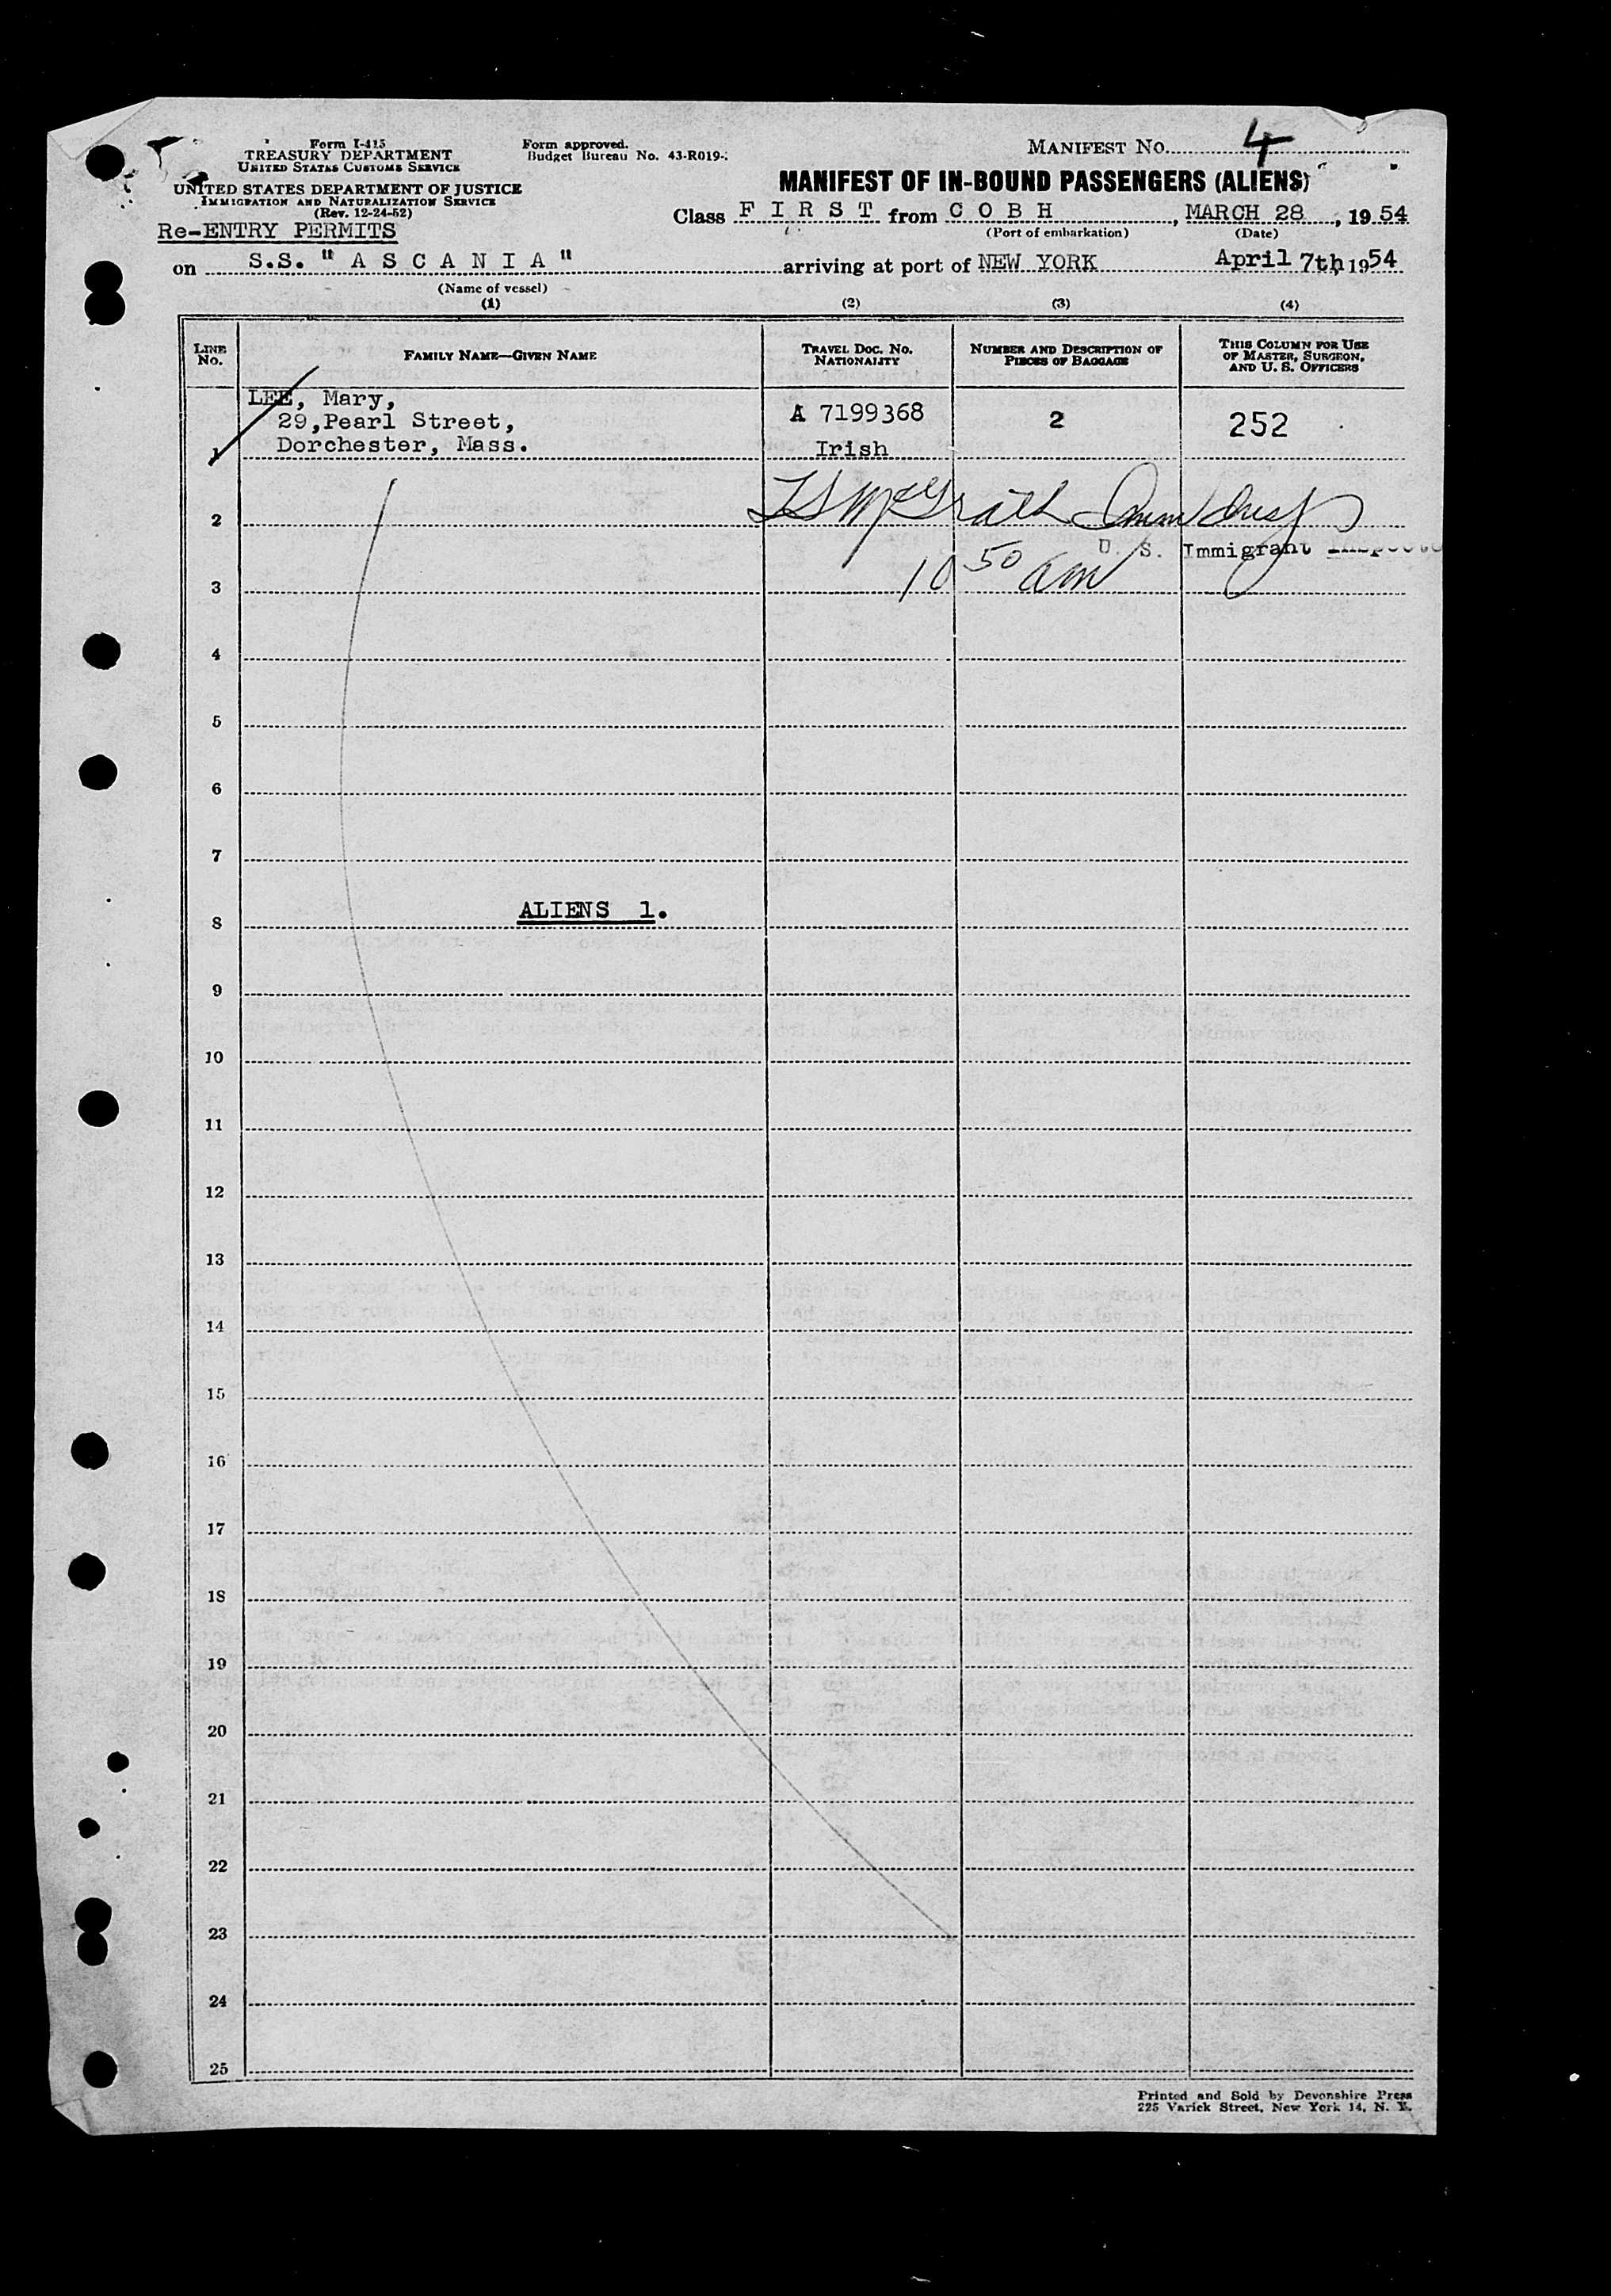 Form I-415
TREASURY DEPARTMENT
UNITED STATES CUSTOMS SERVICE
UNITED STATES DEPARTMENT OF JUSTICE
IMMIGRATION AND NATURALIZATION SERVICE
(Rev. 12-24-52)
Re-ENTRY PERMITS
Form approved.
Budget Bureau No. 43-R019-
MANIFEST No. 4
MANIFEST OF IN-BOUND PASSENGERS (ALIENS)
Class F I R S T from C O B H, MARCH 28, 1954
(Port of embarkation) (Date)
on S.S. "A S C A N I A" arriving at port of NEW YORK April 7th, 1954
(Name of vessel)
(1) (2) (3) (4)
LINE No. FAMILY NAME—GIVEN NAME TRAVEL DOC. NO. NATIONALITY NUMBER AND DESCRIPTION OF PIECES OF BAGGAGE THIS COLUMN FOR USE OF MASTER, SURGEON, AND U. S. OFFICERS
LEE, Mary,
29,Pearl Street, A 7199368 2 252
1 Dorchester, Mass. Irish
McGrath
2
U. S. Immigrant Inspecto
10 50 am
3
4
5
6
7
ALIENS 1.
8
9
10
11
12
13
14
15
16
17
18
19
20
21
22
23
24
25
Printed and Sold by Devonshire Press
225 Varick Street, New York 14, N. Y.